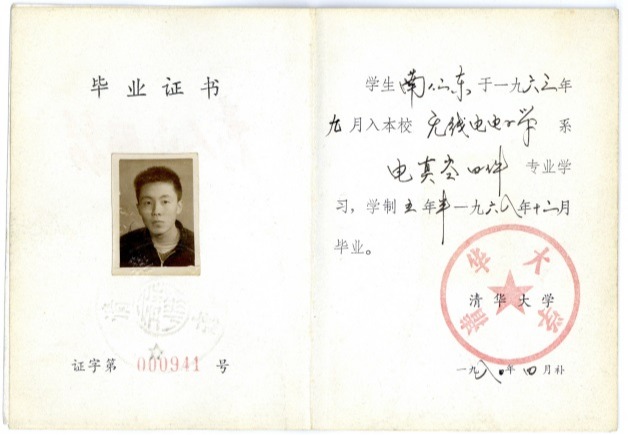 毕业证书
证字第 000941 号
学生南仙东于一九六三年
九月入本校无线电电子学系
电真空 专业学
习，学制五年半一九六八年十二月
毕业。
清华大学
一九八〇年四月补
清华大学